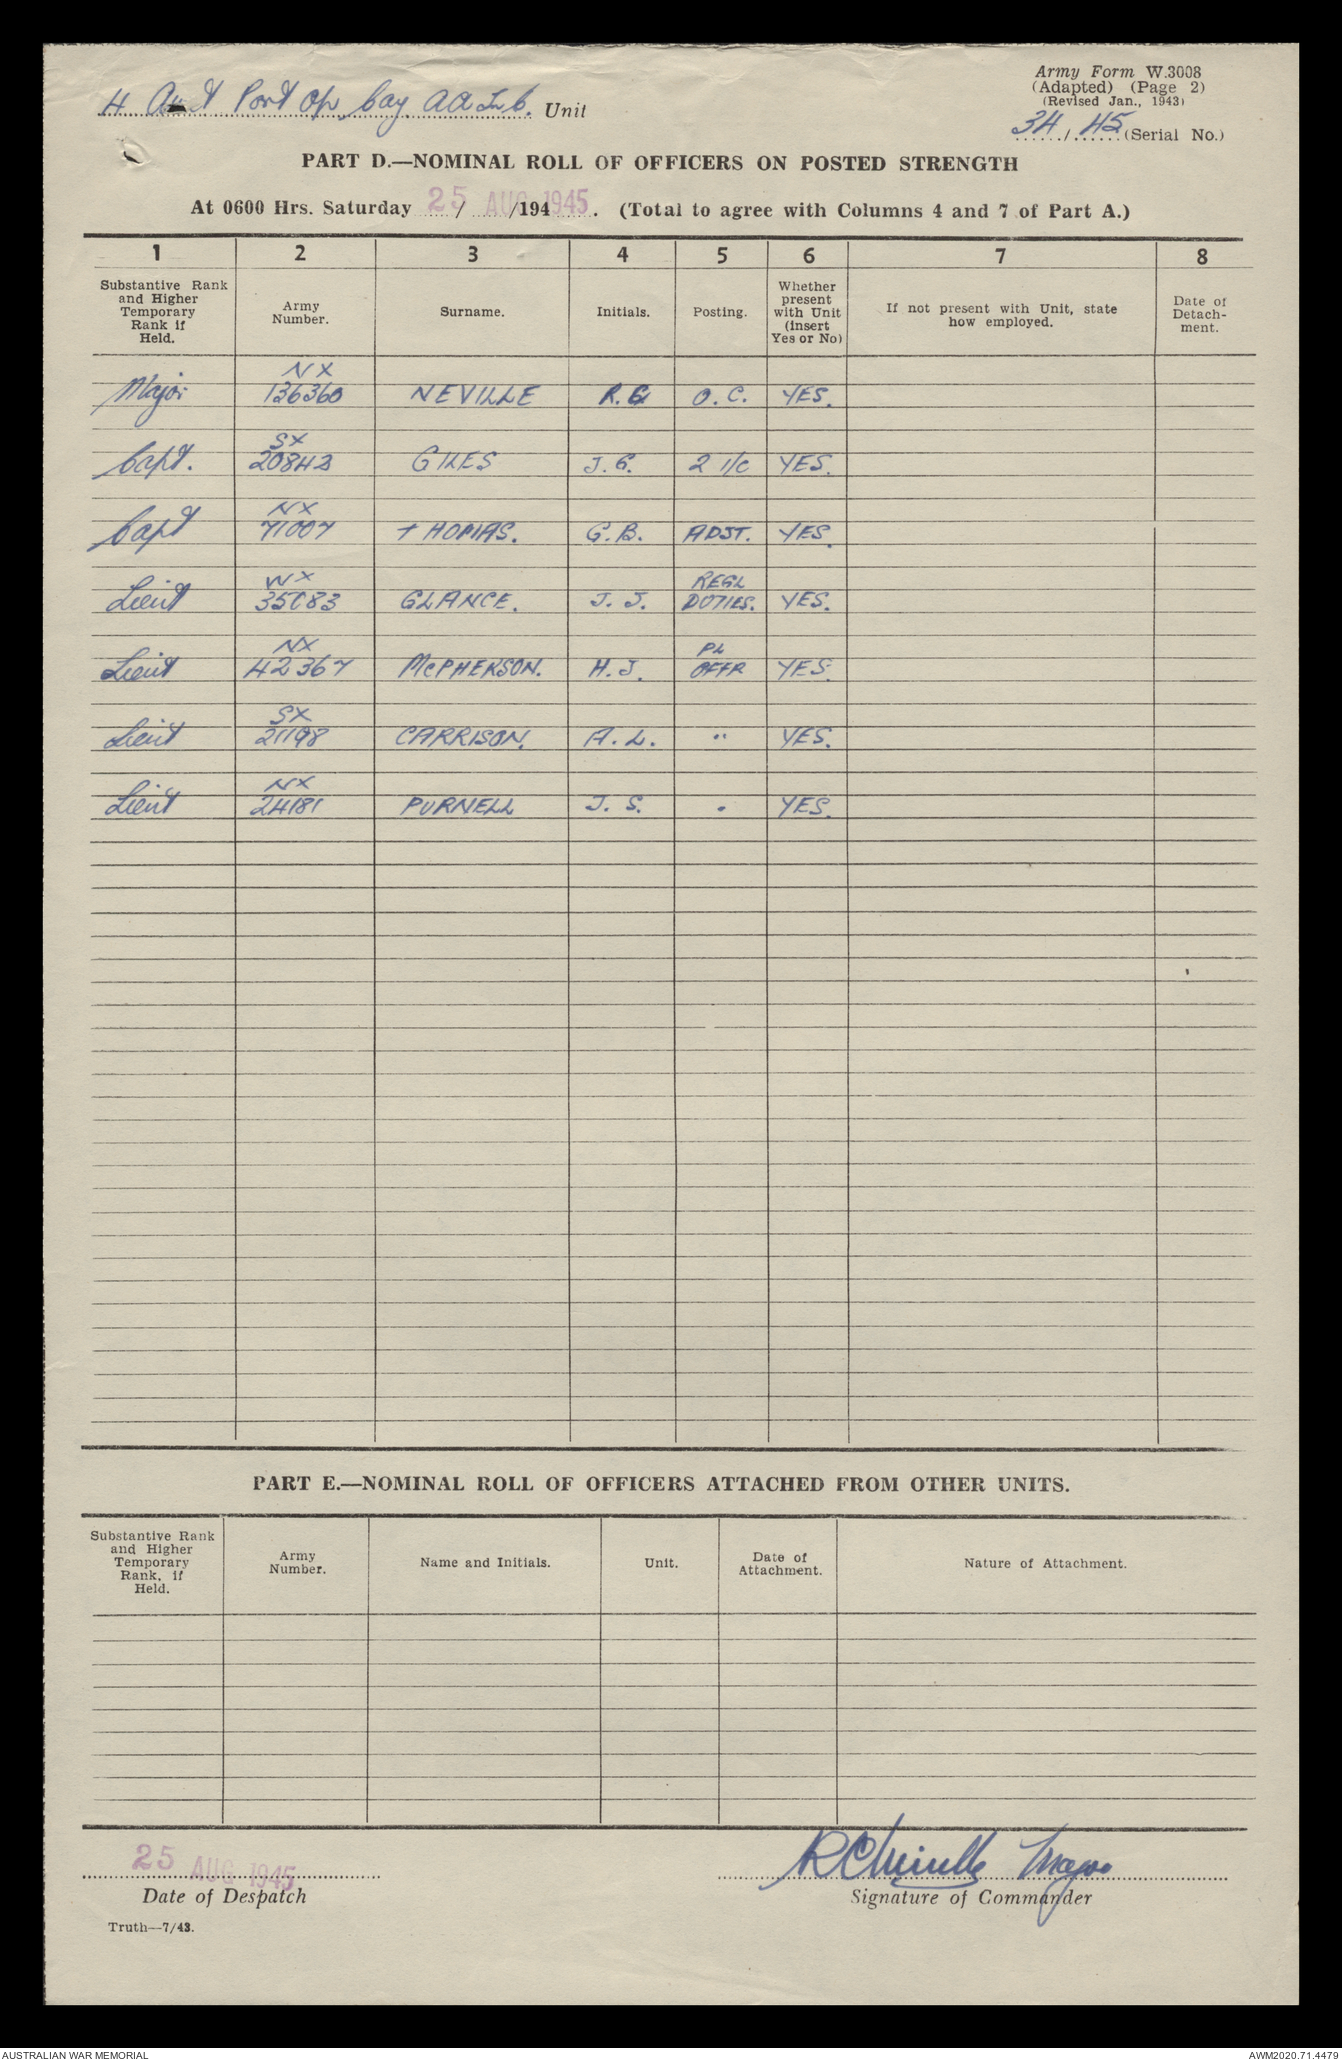 Army Form W.3008
(Adapted) (Page 2)
(Revised Jan., 1943)
34/45 (Serial No.)
4 Aust Port Op Coy A A S C. Unit
PART D.—NOMINAL ROLL OF OFFICERS ON POSTED STRENGTH
At 0600 Hrs. Saturday 25 / AUG /194 1945. (Total to agree with Columns 4 and 7 of Part A.)
1 2 3 4 5 6 7 8
Substantive Rank and Higher Temporary Rank if Held. Army Number. Surname. Initials. Posting. Whether present with Unit (insert Yes or No) If not present with Unit, state how employed. Date of Detach-ment.
NX
Major 136360 NEVILLE R.G O.C. YES.
SX
Capt. 20843 GILES J.G. 2 I/C YES.
NX
Capt 71007 THOMAS. G.B. ADJT. YES.
WX REGL
Lieut 35083 GLANCE. J. J. DUTIES. YES.
NX PL
Lieut 42367 McPHERSON. H.J. OFFR YES.
SX
Lieut 21198 CARRISON. A.L. " YES.
NX
Lieut 24181 PURNELL J. S. " YES.
PART E.—NOMINAL ROLL OF OFFICERS ATTACHED FROM OTHER UNITS.
Substantive Rank and Higher Temporary Rank, if Held. Army Number. Name and Initials. Unit. Date of Attachment. Nature of Attachment.
25 AUG 1945
Neville Major
Date of Despatch
Signature of Commander
Truth—7/43.
AUSTRALIAN WAR MEMORIAL
AWM2020.71.4479